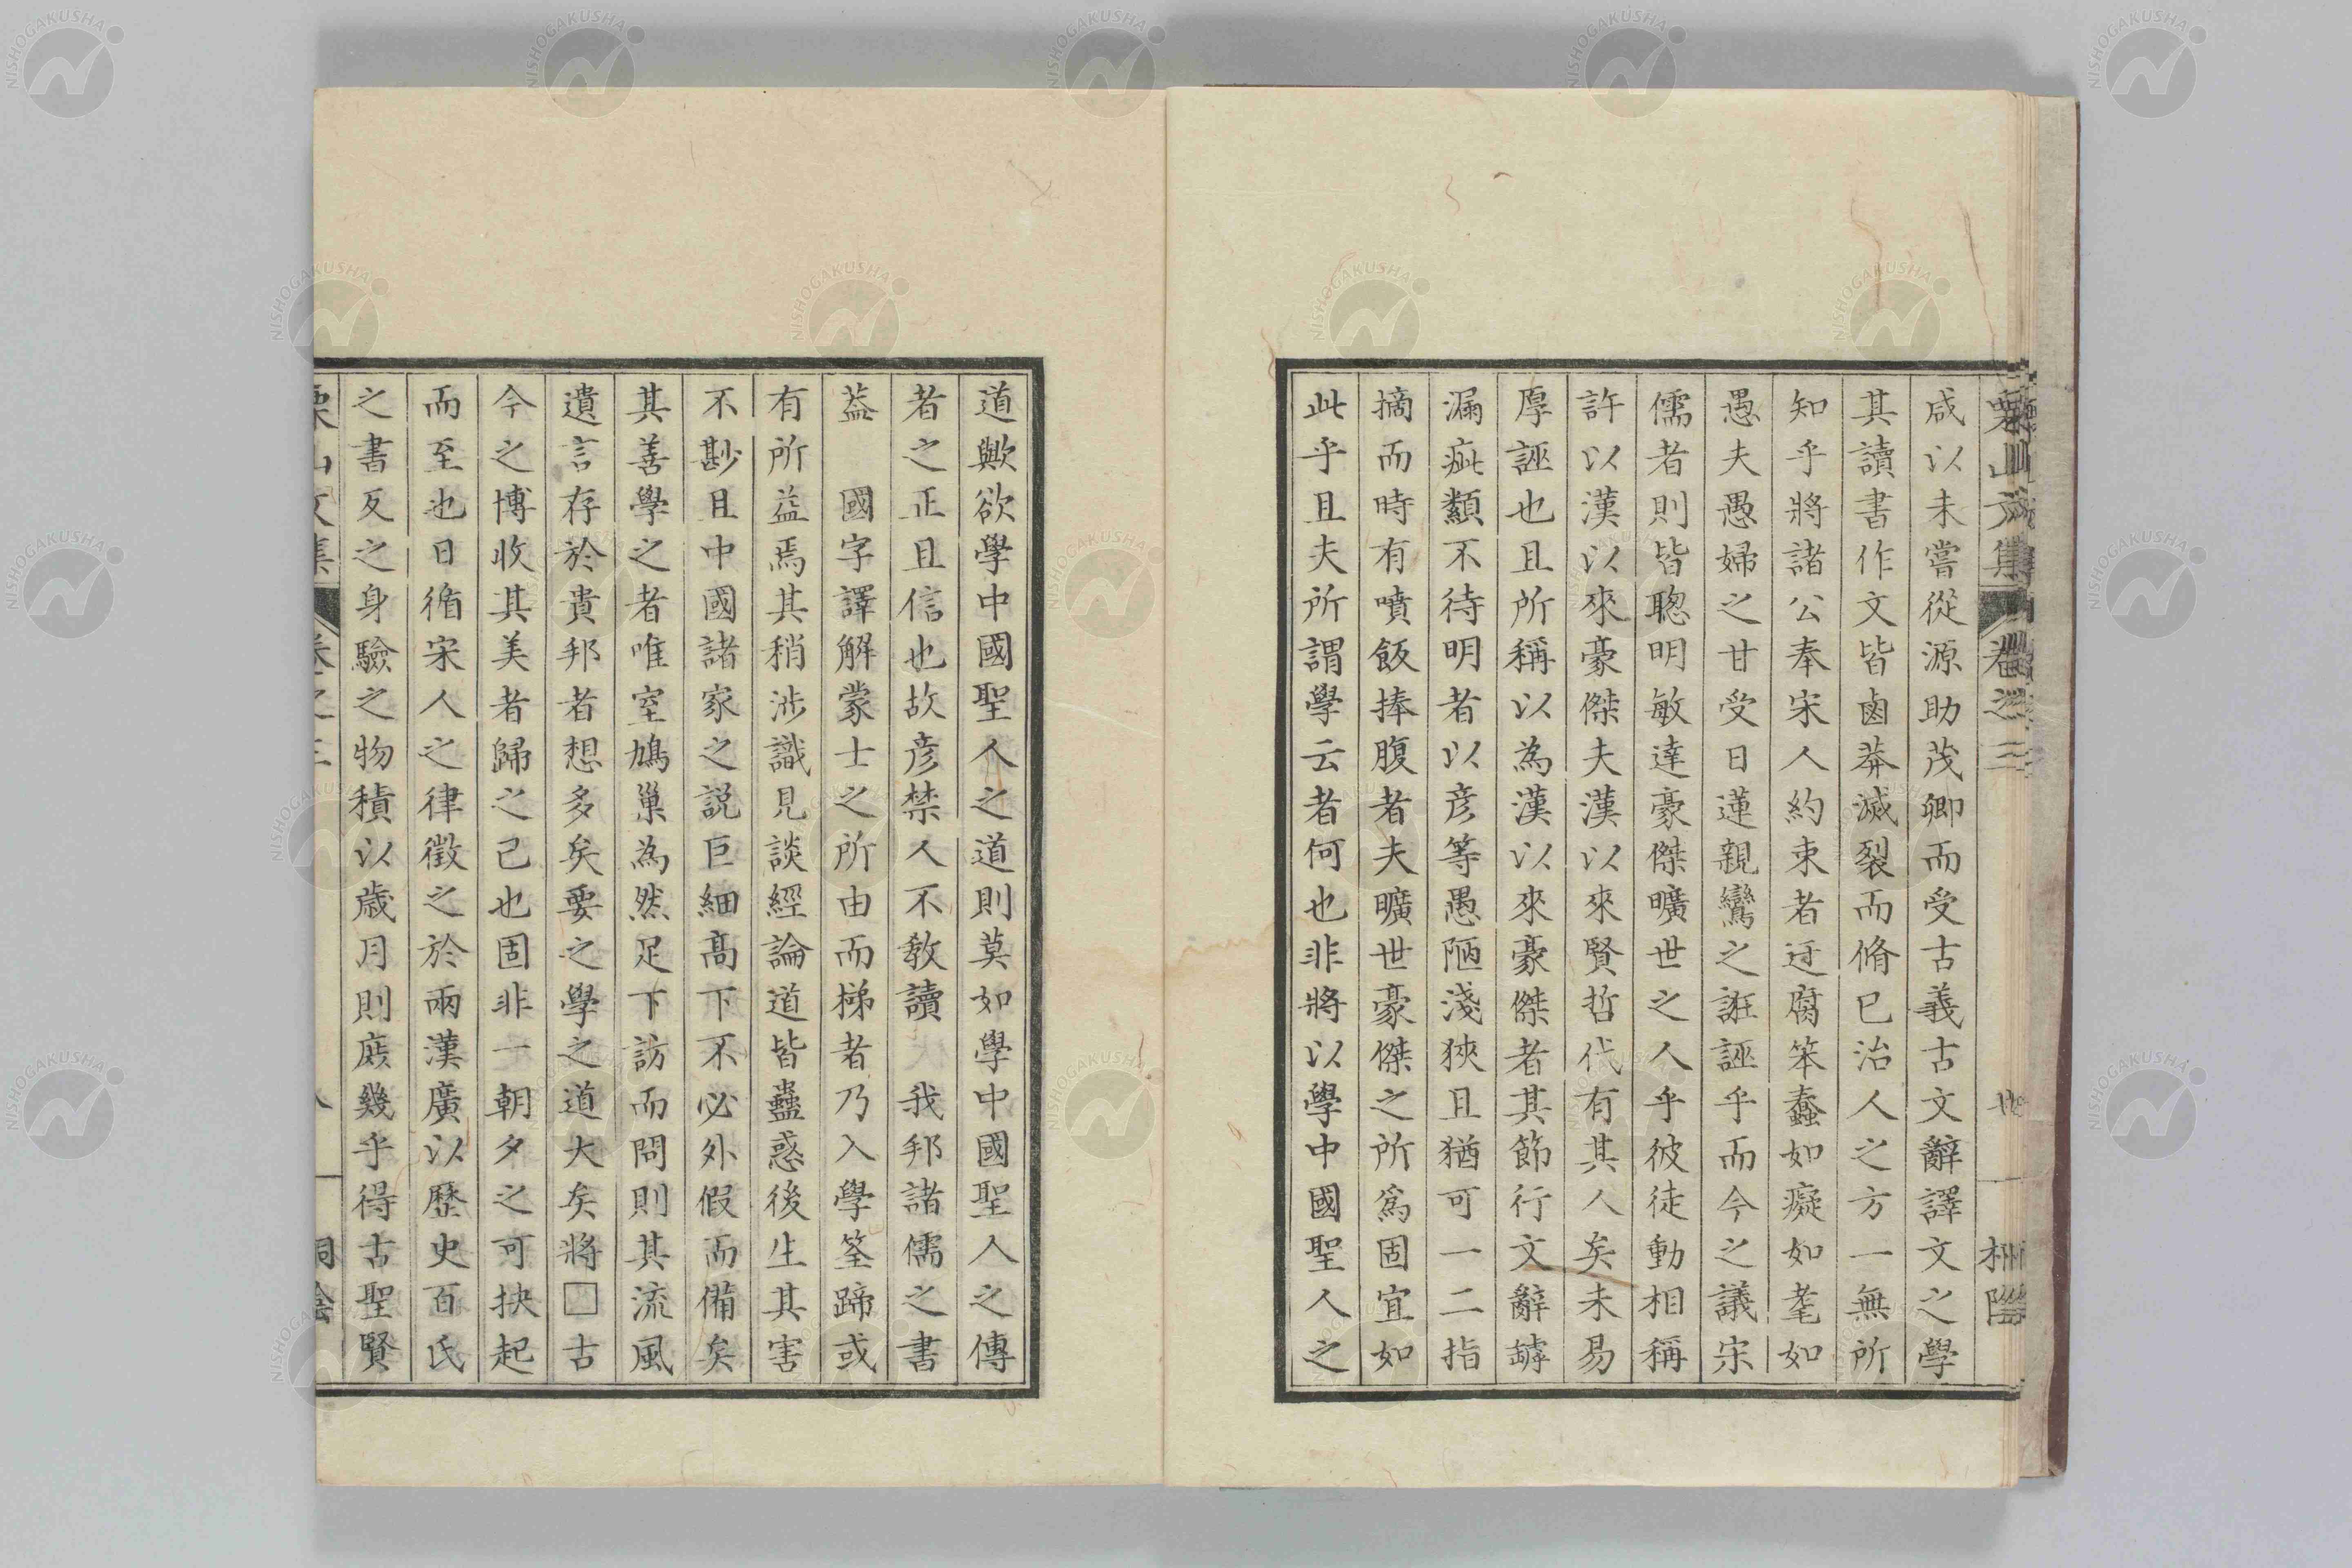 咸以未嘗從源助茂卿而受古義古文辭譯文之學
其讀書作文皆鹵莽滅裂而脩已治人之方一無所
知乎將諸公奉宋人約束者迂腐笨蠢如癡如耄如
愚夫愚婦之甘受日蓮親鸞之誑誣乎而今之議宋
儒者則皆聰明敏達豪傑曠世之人乎彼徒動相稱
許以漢以來豪傑夫漢以來賢哲代有其人矣未易
厚誣也且所稱以為漢以來豪傑者其節行文辭罅
漏疵纇不待明者以彥等愚陋淺狹且猶可一二指
摘而時有噴飯捧腹者夫曠世豪傑之所爲固宜如
此乎且夫所謂學云者何也非將以學中國聖人之
道歟欲學中國聖人之道則莫如學中國聖人之傳
者之正且信也故彥禁人不教讀我邦諸儒之書
葢國字譯解蒙士之所由而梯者乃入學筌蹄或
有所益焉其稍涉識見談經論道皆蠱惑後生其害
不尠且中國諸家之説巨細高下不必外假而備矣
其善學之者唯室鳩巢為然足下訪而問則其流風
遺言存於貴邦者想多矣要之學之道大矣將□古
今之博收其美者歸之己也固非一朝夕之可抉起
而至也日循宋人之律徵之於兩漢廣以歷史百氏
之書反之身驗之物積以歳月則庶幾乎得古聖賢
栗山文集
卷之三
八
桐陰
NISHOGAKUSHA